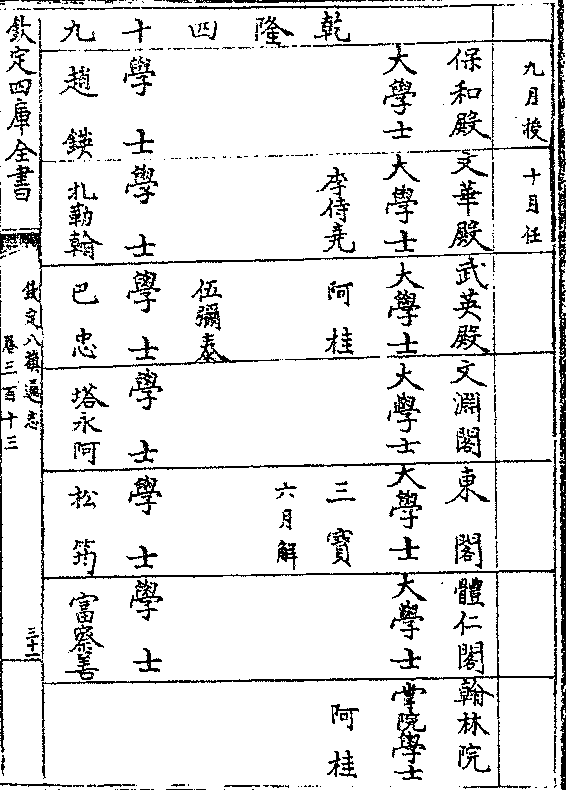 九月授 十月任
乾隆四十九
保和殿 文華殿 武英殿 文淵閣 東閣 體仁閣 翰林院
大學士 大學士 大學士 大學士 大學士 大學士 掌院學士
李侍堯 阿桂 三寶 阿桂
六月解
伍彌泰
學士 學士 學士 學士 學士 學士
趙鍈 扎勒翰 巴忠 塔永阿 松筠 富察善
欽定四庫全書
欽定八旗通志
卷三百十三